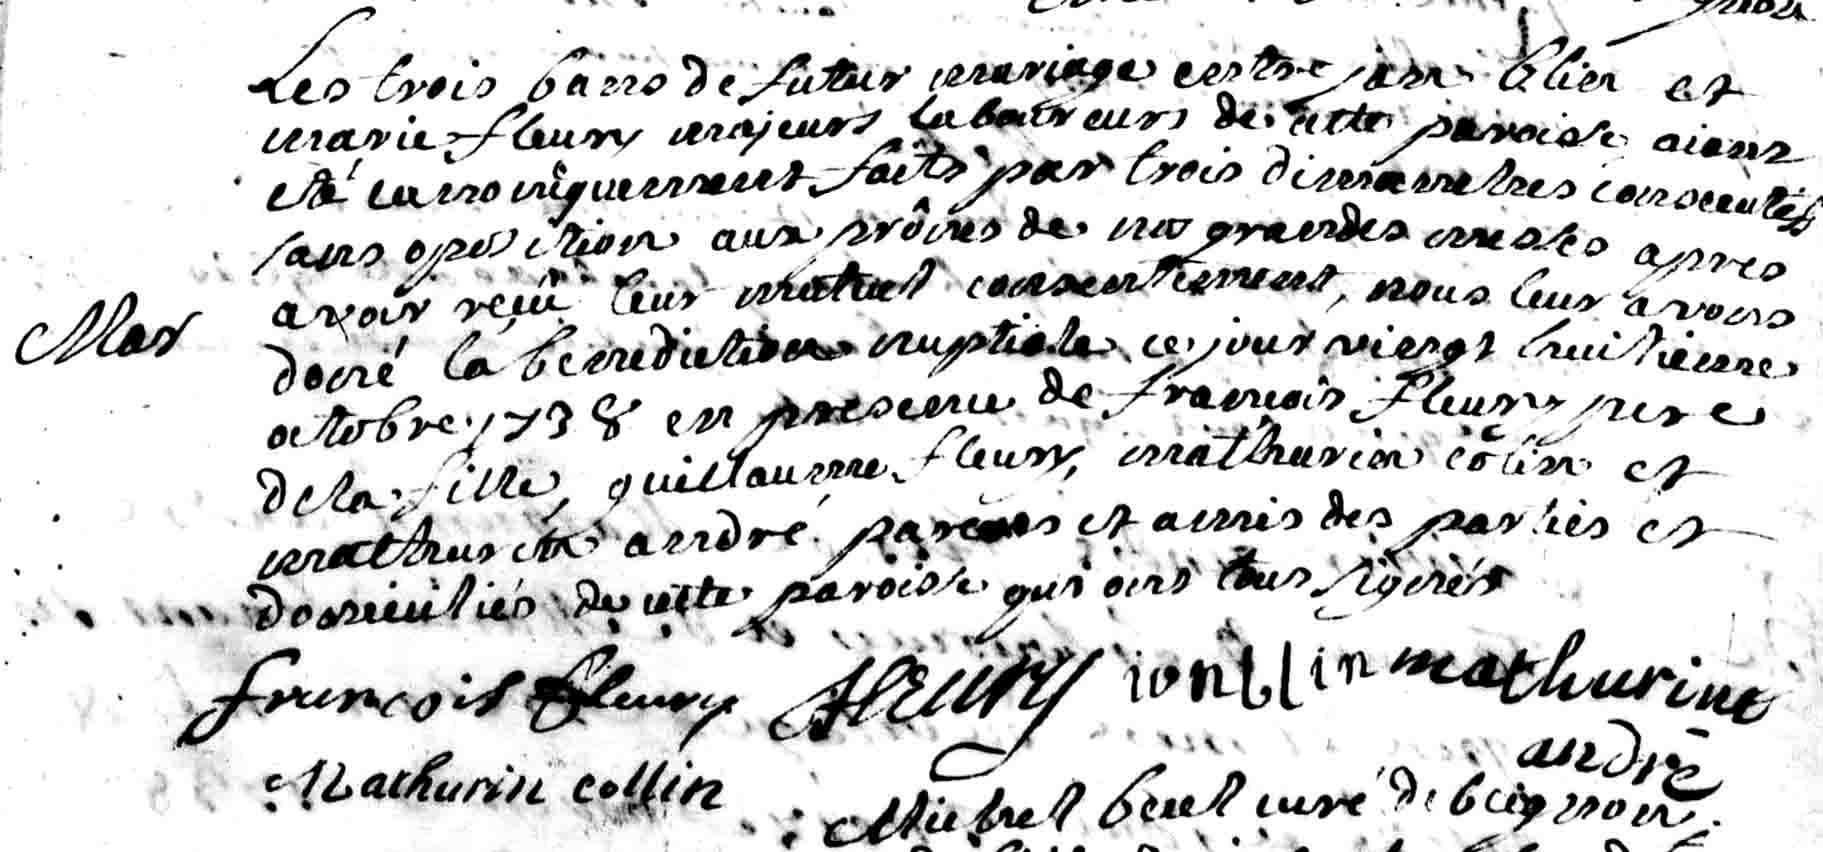 Les trois bans de futur mariage entre jan blin et
marie fleury majeurs laboureurs de cette paroisse aiant
été canoniquement faits par trois dimanches consecutifs
sans oposition aux prônes de nos grandes messes apres
avoir reçu leur mutuel consentement, nous leur avons
Mar
doné la benediction nuptiale ce jour vingt huitieme
octobre 1738 en presence de françois fleury pere
de la fille, guillaume fleury, mathurin colin et
mathurin andré parens et amis des parties et
domiciliés de cette paroisse qui ons tous signés
françois fleury fleury ian blin mathurin
andré
Mathurin collin
Michel curé de beignon